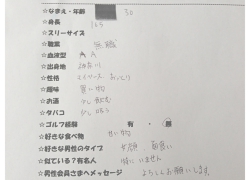 ☆なまえ・年齢 30
☆身長 165
☆スリーサイズ
☆職業 無職
☆血液型 A
☆出身地 神奈川
☆性格 マイペース おっとり
☆趣味 買い物
☆お酒 少し飲む
☆タバコ
☆ゴルフ経験 有・無
☆好きな食べ物 甘い物
☆好きな男性のタイプ
☆似ている?有名人 特にいません
☆男性会員さまへメッセージ よろしくお願いします。